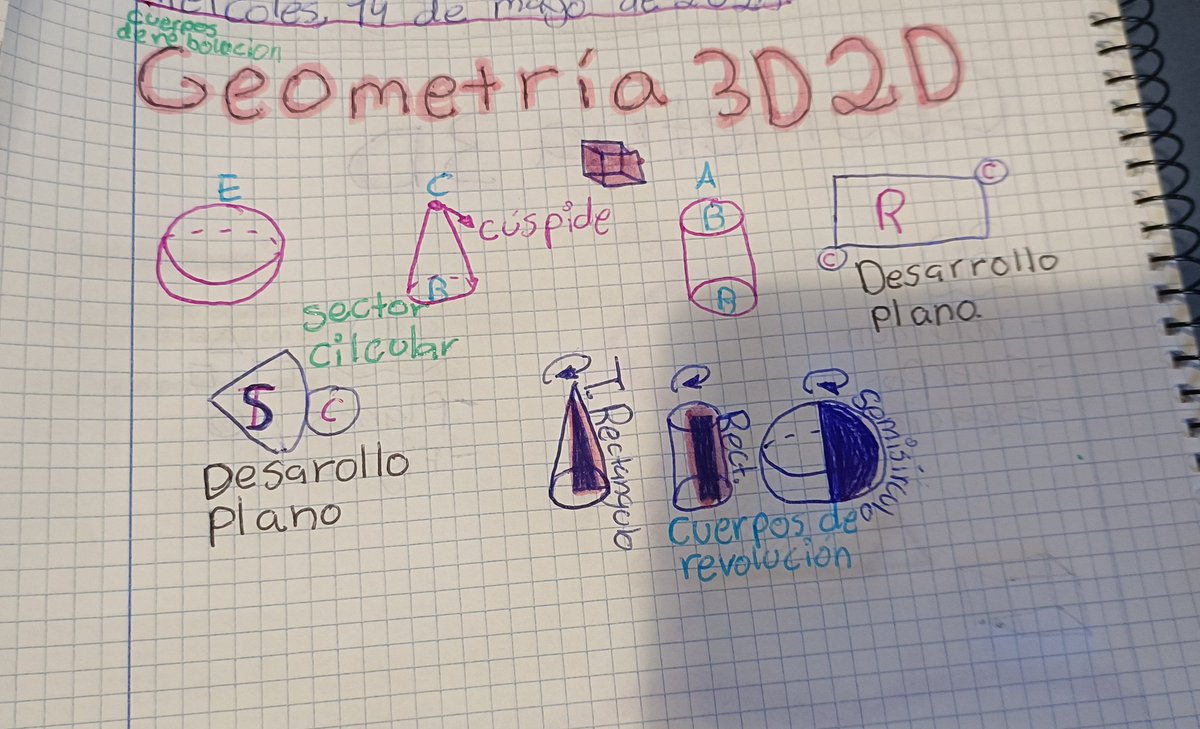 coles, 14 de mayo de
cuerpos
de rebolacion
Geometría 3D2D
E
C
cúspide
B
A
B
B
R
C
C
Desarrollo
plano
sector
cilcular
S
C
Desarollo
plano
T. Rectangulo
Rect.
semisirculo
cuerpos de
revolución